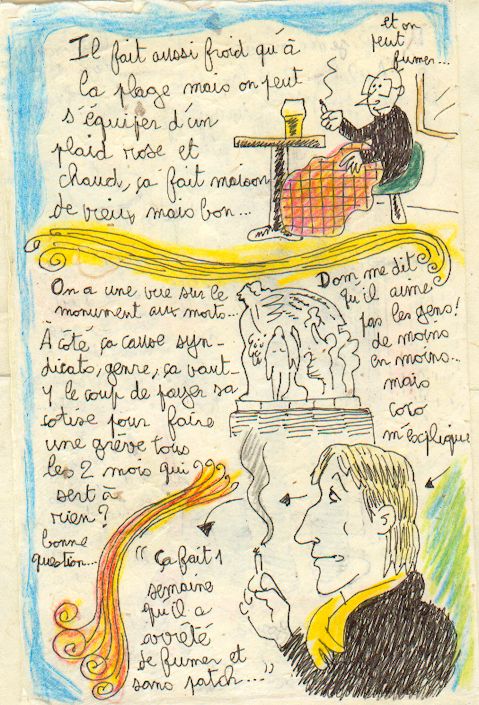 Il fait aussi froid qu'à
la plage mais on peut
s'équiper d'un
plaid rose et
chaud, ça fait maison
de vieux mais bon...
et on
peut
fumer...
On a une vue sur le
monument aux morts...
À côté ça cause syn-
dicats, genre, ça vaut-
y le coup de payer sa
cotise pour faire
une grève tous
les 2 mois qui ???
sert à
rien?
bonne
question...
Dom me dit
qu'il aime
pas les gens!
de moins
en moins...
mais
coco
m'explique
"ça fait 1
semaine
qu'il a
arrêté
de fumer et
sans patch..."